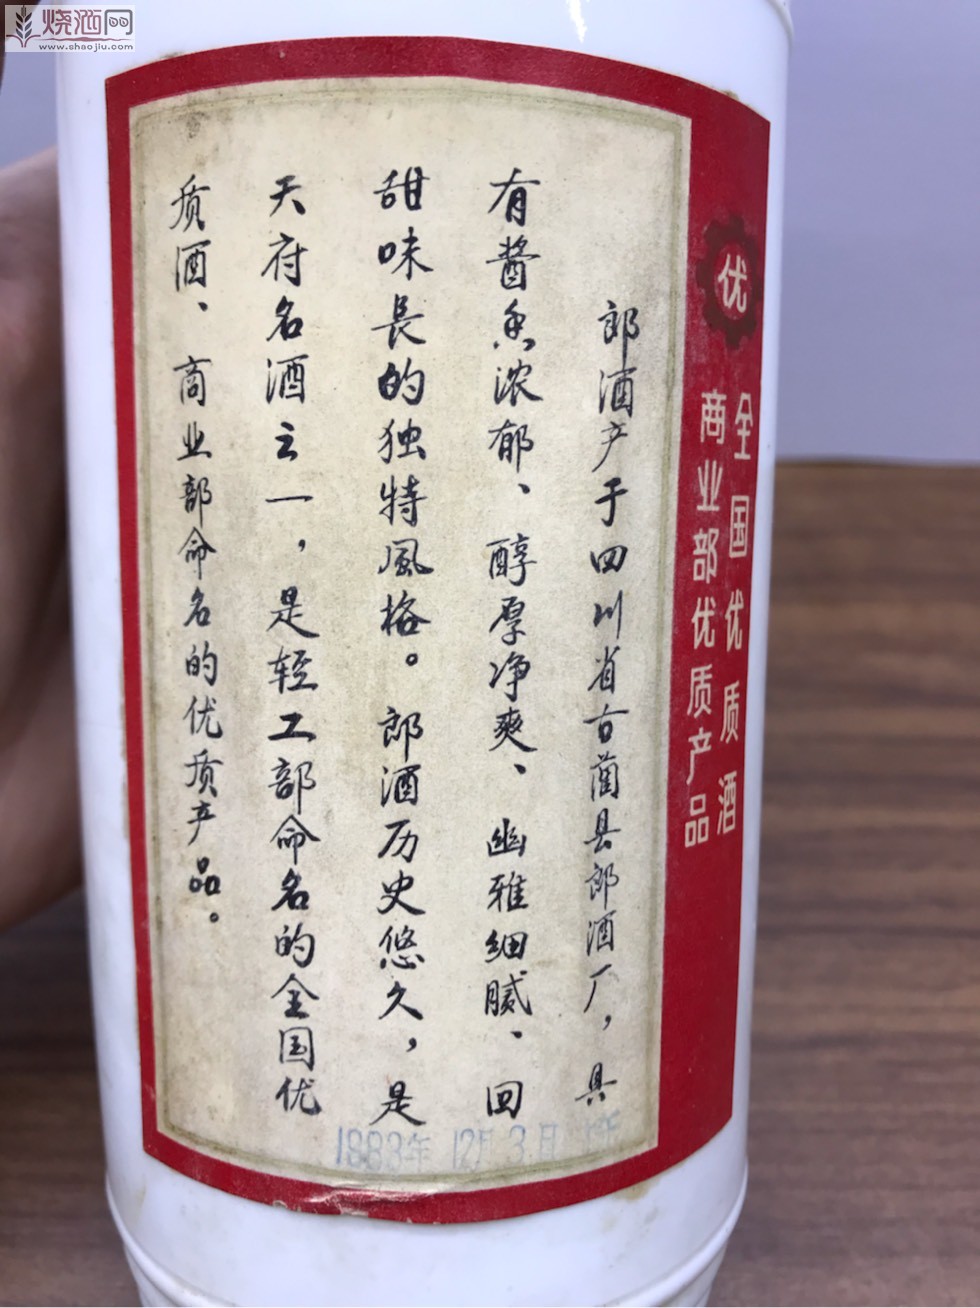 烧酒网
www.shaojiu.com
优
全国优质酒
商业部优质产品
郎酒产于四川省古蔺县郎酒厂，具
有酱香浓郁、醇厚净爽、幽雅细腻、回
甜味長的独特風格。郎酒历史悠久，是
天府名酒之一，是轻工部命名的全国优
质酒、商业部命名的优质产品。
1983年 12月 3日